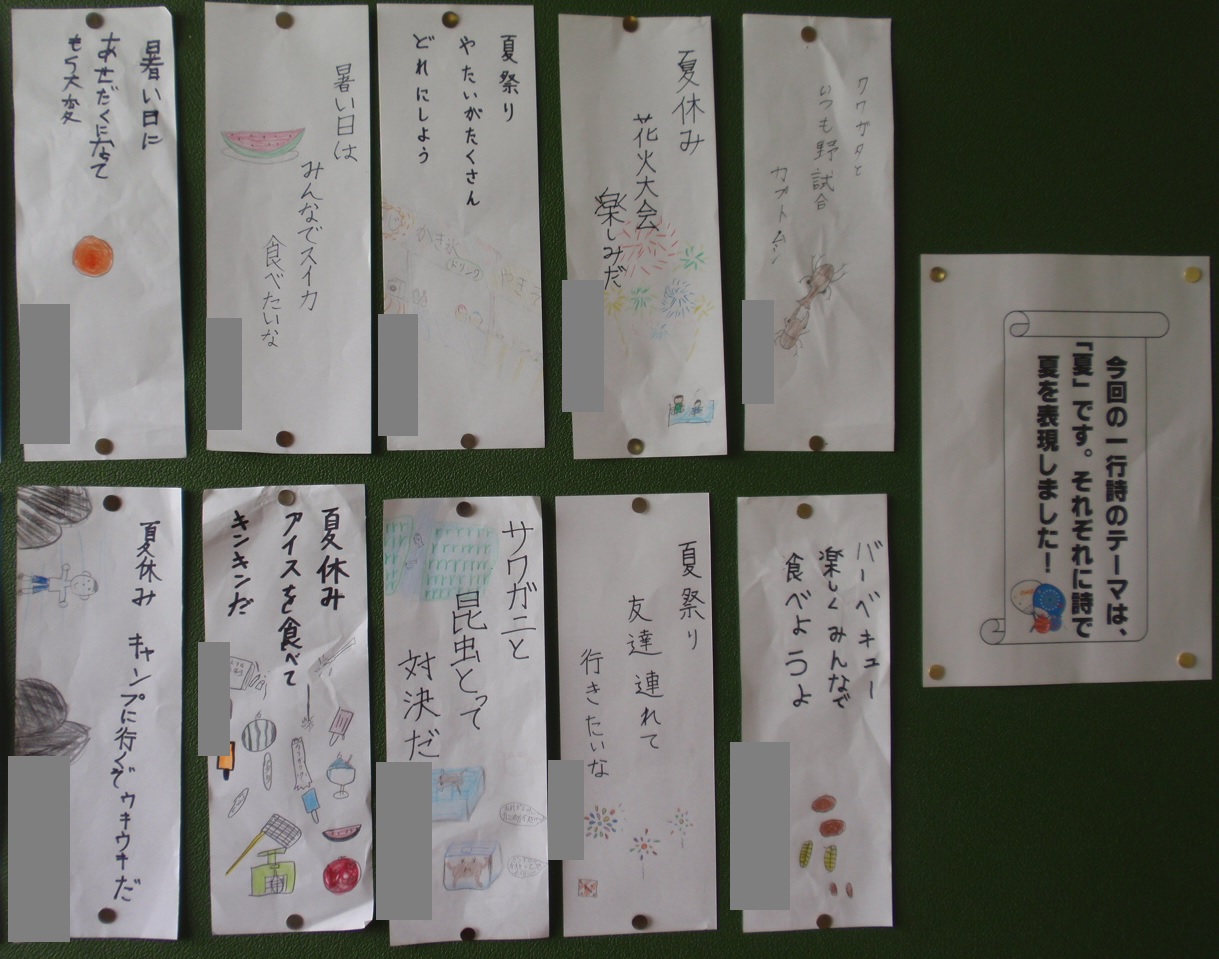 今回の一行詩のテーマは、
「夏」です。それぞれに詩で
夏を表現しました！
クワガタと
いつも野試合
カブトムシ
夏休み
花火大会
楽しみだ
夏祭り
やたいがたくさん
どれにしよう
かき氷
ドリンク
やきそ
暑い日は
みんなでスイカ
食べたいな
暑い日に
あせだくになって
もう大変
バーベキュー
楽しくみんなで
食べようよ
夏祭り
友達連れて
行きたいな
サワガニと
昆虫とって
対決だ
夏休み
アイスを食べて
キンキンだ
夏休み
キャンプに行くぞウキウキだ